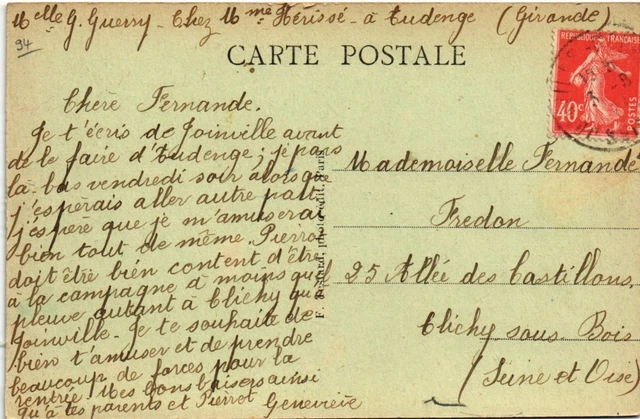 Melle G. Guerry - Chez Mme Hérissé - à Audenge (Gironde)
94
CARTE POSTALE
REPUBLIQUE FRANÇAISE
POSTES
40c
Chère Fernande.
Je t'écris de Joinville avant
de le faire d'Audenge ; je pars
là-bas vendredi soir alorsque
j'espérais aller autre part
j'espère que je m'amuserai
bien tout de même. Pierrot
doit être bien content d'être
à la campagne à moins qu'il
pleuve autant à Clichy qu'à
Joinville. Je te souhaite de
bien t'amuser et de prendre
beaucoup de forces pour la
rentrée. Mes bons baisers ainsi
qu'à tes parents et Pierrot
Geneviève
édit. Paris
Mademoiselle Fernande
Fredon
25 Allée des Castillons,
Clichy sous Bois
(Seine et Oise)